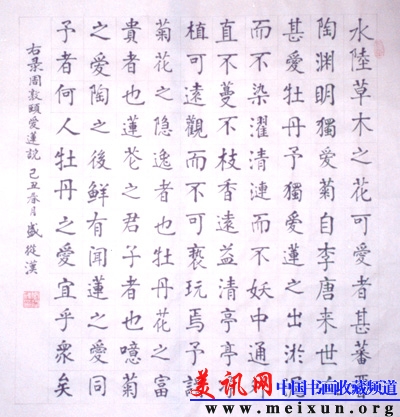 水陸草木之花可愛者甚蕃晉
陶渊明獨愛菊自李唐来世人
甚愛牡丹予獨愛蓮之出淤泥
而不染濯清漣而不妖中通
直不蔓不枝香遠益清亭亭
植可遠觀而不可褻玩焉予謂
菊花之隐逸者也牡丹花之富
貴者也蓮花之君子者也噫菊
之愛陶之後鮮有聞蓮之愛同
予者何人牡丹之愛宜乎衆矣
右录周敦頤愛蓮說 己丑春月 盛從漢
美讯网 中国书画收藏频道
www.meixun.org